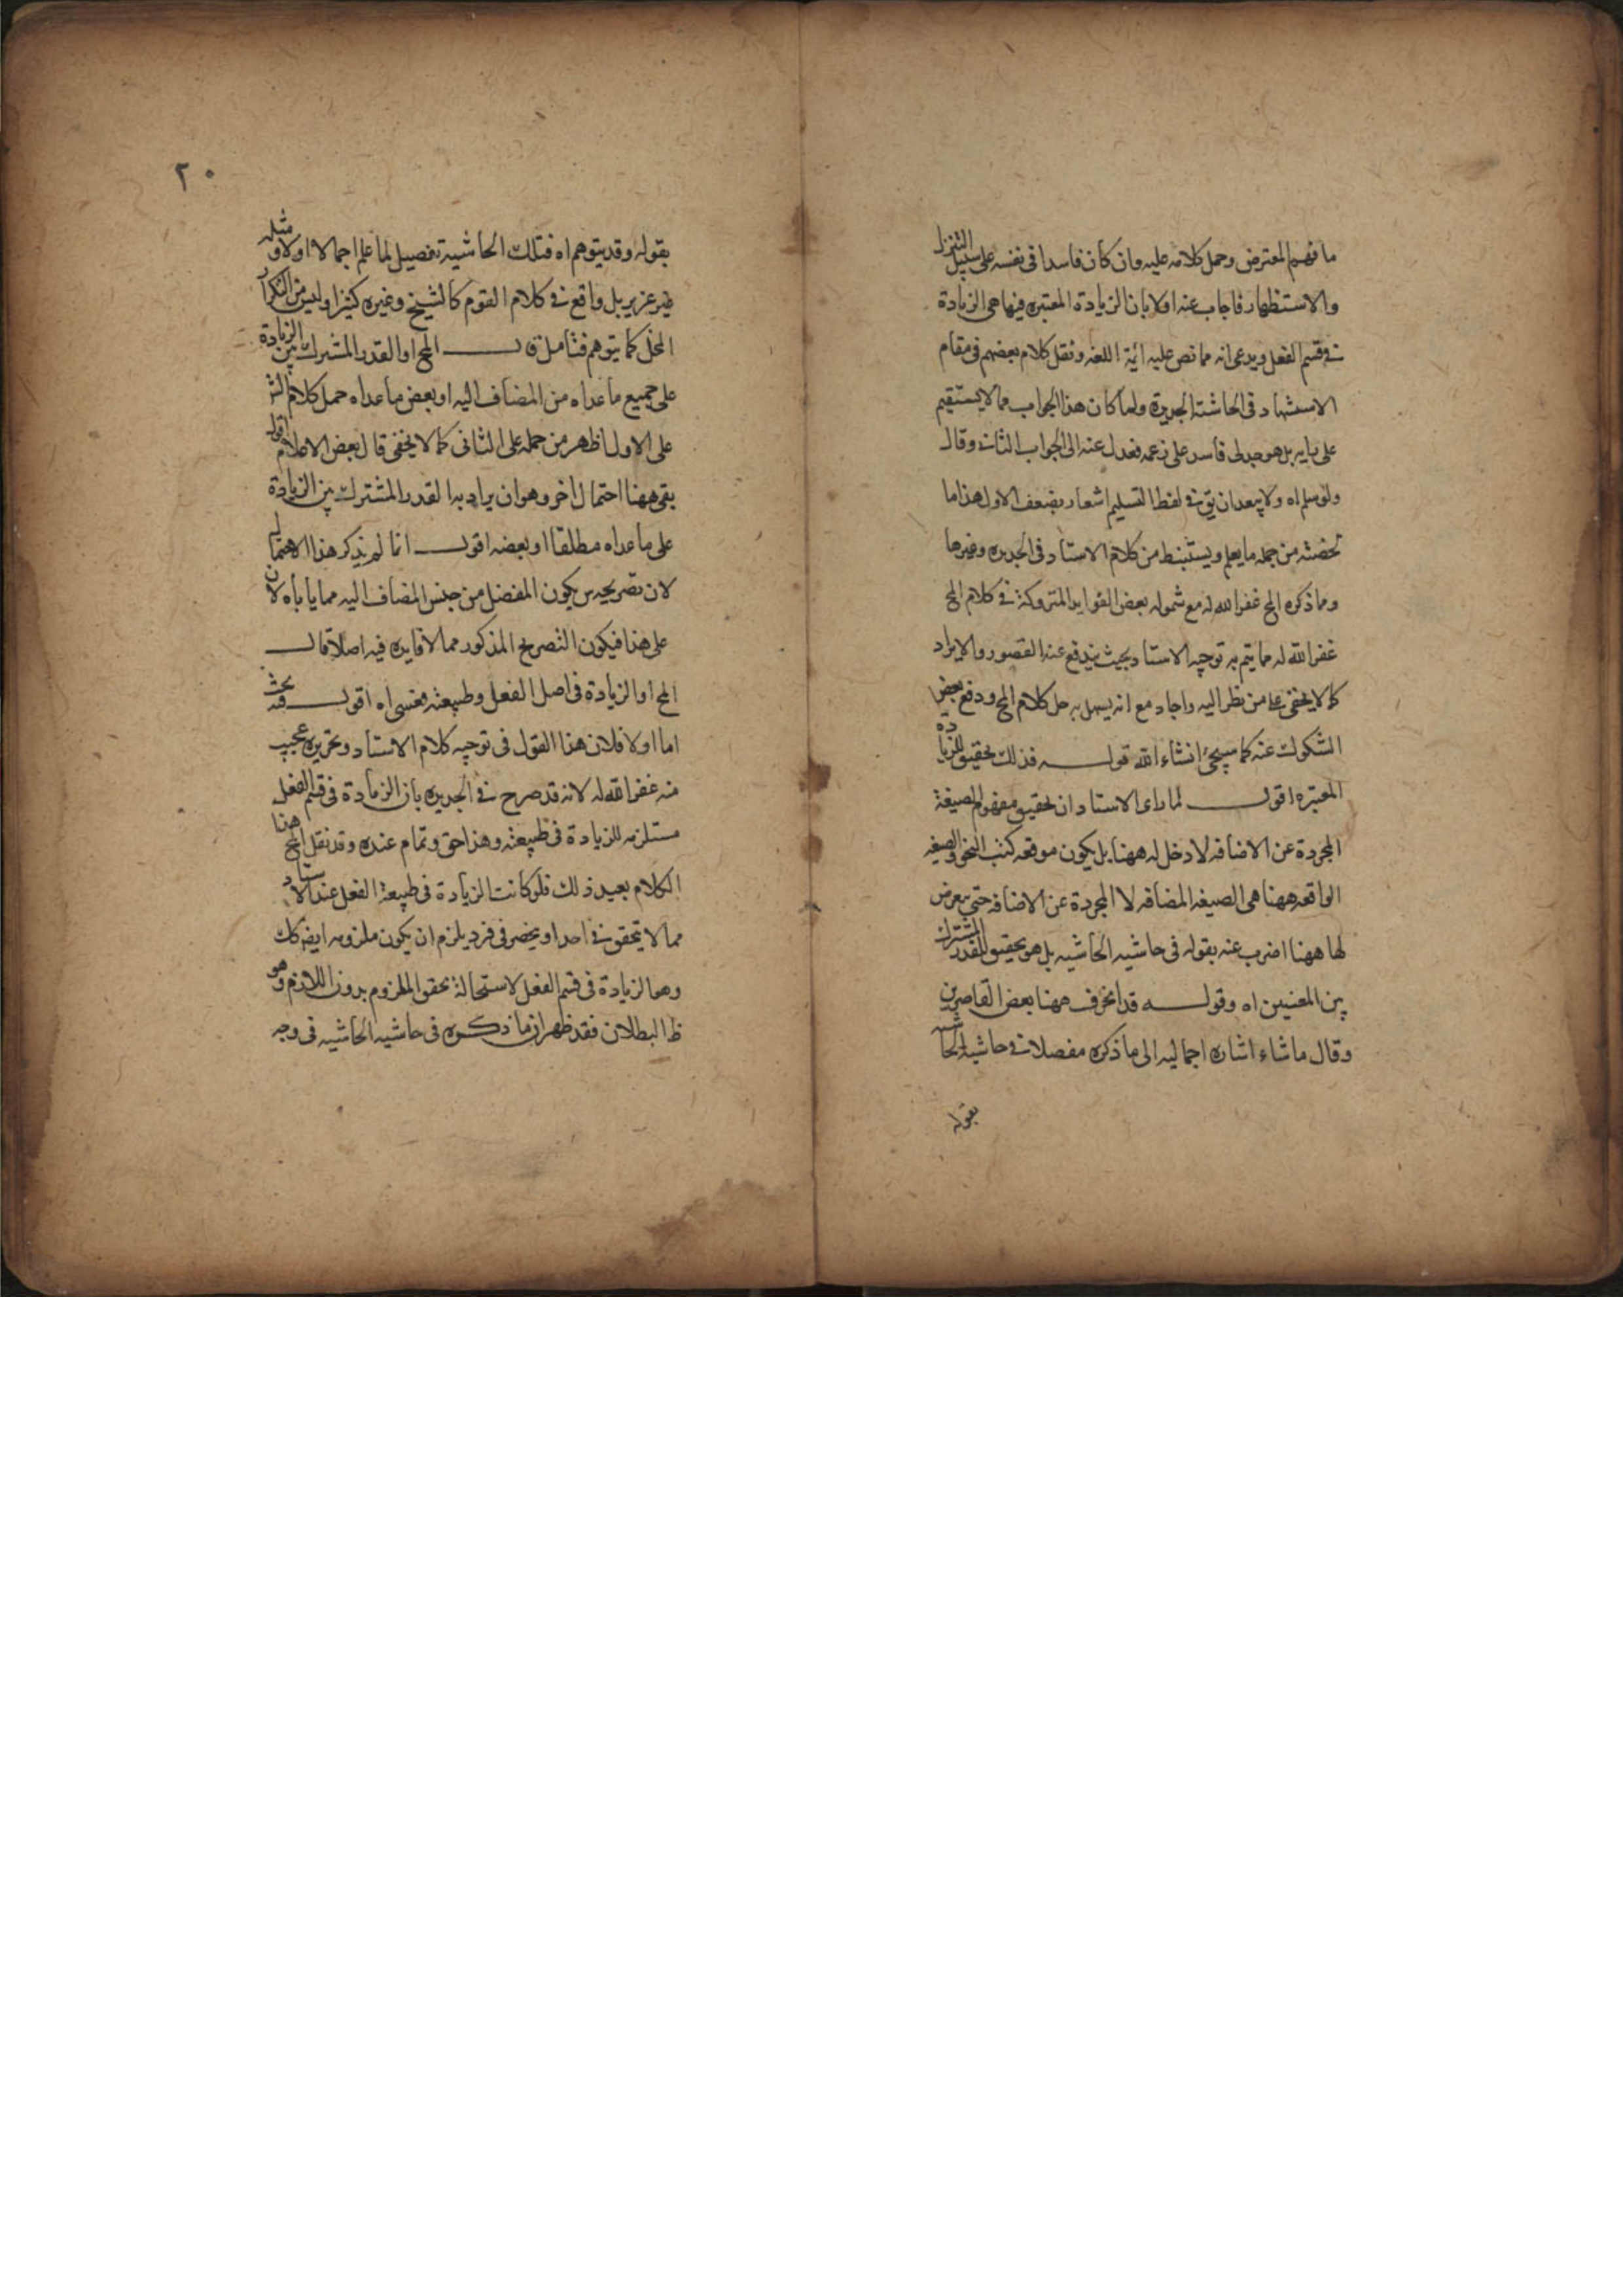 ما فهم المعترض وحمل كلامه عليه وان كان فاسدا في نفسه على سبيل التنزل
والاستظهار فاجاب عنه اولا بان الزيادة المعتبره فيها هي الزيادة
في قسم الفعل ويدعى انه مما نص عليه ائمة اللغه ونقل كلام بعضهم في مقام
الاستشهاد في الحاشته الجديدة ولما كان هذا الجواب مما لا يستقيم
على بل هو جدلى فاسد على زعمه فعدل عنه الى الجواب الثاني وقال
ولو سلم اه ولا يبعد ان يق في لفظ التسليم اشعار بضعف الاول هذا ما
لخصته من جمله ما يعلم ويستنبط من كلام الاستاد في الجديده وغيرها
وما ذكره المح غفر الله له مع شموله بعض الفوايد المتروكة في كلام المح
غفر الله له مما يتم به توجيه الاستاد بحيث يندفع عنه القصور والايراد
كما لا يخفى على من نظر اليه واجاد مع انه يسهل به حل كلام المح ودفع بعض
الشكوك عنه كما سيجئ انشاء الله قوله فذلك تحقيق للزيادة
المعتبره اقول لما راى الاستاد ان تحقيق مفهوم الصيغة
المجردة عن الاضافه لا دخل له ههنا بل يكون موقعه كتب النحو والصيغه
الواقعه ههنا هي الصيغه المضافه لا المجردة عن الاضافه حتى يتعرض
لها ههنا اضرب عنه بقوله في حاشيه الحاشيه بل هو تحقيق للقدر المشترك
بين المعنيين اه وقوله قد انحرف ههنا بعض القاصرين
وقال ما شاء اشاره اجماليه الى ما ذكره مفصلا في حاشيه الحاشيه
بقوله
٢٠
بقوله وقد يتوهم اه فتلك الحاشية تفصيل لما علم اجمالا اولا ومثله
غير عزيز بل واقع في كلام القوم كالشيخ وغيره كثيرا وليس من التكرار
المخل كما يتوهم فتامل قال المح او القدر المشترك بين الزيادة
على جميع ما عداه من المضاف اليه او بعض ما عداه حمل كلام الش
على الاول اظهر من حمله على الثاني كما لا يخفى قال بعض الاعلام اقول
بقى ههنا احتمال اخر وهو ان يراد به القدر المشترك بين الزيادة
على ما عداه مطلقا او بعضه اقول انما لم يذكر هذا الاحتمال
لان تصريحه بكون المفضل من جنس المضاف اليه مما ياباه لان
على هذا فيكون التصريح المذكور مما لا فايده فيه اصلا قال
المح او الزيادة في اصل الفعل وطبيعته فعسى اه اقول فيه بحث
اما اولا فلان هذا القول في توجيه كلام الاستاد وتحريره عجيب
منه غفر الله له لانه قد صرح في الجديده بان الزيادة في قسم الفعل
مستلزمه للزيادة في طبيعته وهذا حق وتمام عنده وقد نقل المح هذا
الكلام بعيد ذلك فلو كانت الزيادة في طبيعة الفعل عند الاستاد
مما لا يتحقق في احد او يحضر في فرد يلزم ان يكون ملزومه ايضا كك
وهو الزيادة في قسم الفعل لاستحالة تحقق الملزوم بدون اللازم وهو
ظ البطلان فقد ظهر ان ما ذكره في حاشيه الحاشيه في وجه